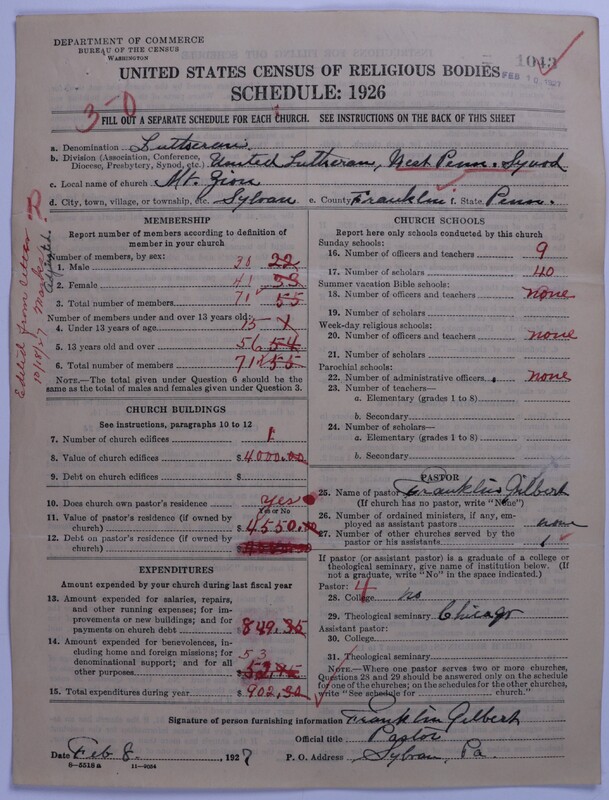 DEPARTMENT OF COMMERCE
BUREAU OF THE CENSUS
WASHINGTON
1043
FEB 10 1927
UNITED STATES CENSUS OF RELIGIOUS BODIES
SCHEDULE: 1926
3-0
FILL OUT A SEPARATE SCHEDULE FOR EACH CHURCH. SEE INSTRUCTIONS ON THE BACK OF THIS SHEET
a. Denomination Lutheran
b. Division (Association, Conference, Diocese, Presbytery, Synod, etc.) United Lutheran, West Penn. Synod
c. Local name of church Mt. Zion
d. City, town, village, or township, etc. Sylvan e. County Franklin f. State Penn.
Edited from letter
10/18/27
MEMBERSHIP
Report number of members according to definition of
member in your church
Number of members, by sex:
1. Male 30 22
2. Female 41 33
3. Total number of members 71 55
Number of members under and over 13 years old:
4. Under 13 years of age 15 1
5. 13 years old and over 56 54
6. Total number of members 71 55
NOTE.—The total given under Question 6 should be
same as the total of males and females given under Question 3.
CHURCH BUILDINGS
See instructions, paragraphs 10 to 12
7. Number of church edifices 1
8. Value of church edifices $4000.00
9. Debt on church edifices $
10. Does church own pastor's residence Yes
Yes or No
11. Value of pastor's residence (if owned by
church) $4550.00
12. Debt on pastor's residence (if owned by
church) $
EXPENDITURES
Amount expended by your church during last fiscal year
13. Amount expended for salaries, repairs,
and other running expenses; for im-
provements or new buildings; and for
payments on church debt $849.35
14. Amount expended for benevolences,
including home and foreign missions; for
denominational support; and for all
other purposes 53
$52.95
15. Total expenditures during year $902.30
CHURCH SCHOOLS
Report here only schools conducted by this church
Sunday schools:
16. Number of officers and teachers 9
17. Number of scholars 40
Summer vacation Bible schools:
18. Number of officers and teachers none
19. Number of scholars
Week-day religious schools:
20. Number of officers and teachers none
21. Number of scholars
Parochial schools:
22. Number of administrative officers none
23. Number of teachers—
a. Elementary (grades 1 to 8)
b. Secondary
24. Number of scholars—
a. Elementary (grades 1 to 8)
b. Secondary
PASTOR
25. Name of pastor Franklin Gilbert
(If church has no pastor, write "None")
26. Number of ordained ministers, if any, em-
ployed as assistant pastors none
27. Number of other churches served by the
pastor or his assistants 1
If pastor (or assistant pastor) is a graduate of a college or
theological seminary, give name of institution below. (If
not a graduate, write "No" in the space indicated.)
Pastor: 4
28. College no
29. Theological seminary Chicago
Assistant pastor:
30. College
31. Theological seminary
NOTE.—Where one pastor serves two or more churches,
Questions 28 and 29 should be answered only on the schedule
for one of the churches; on the schedules for the other churches,
write "See schedule for church."
Signature of person furnishing information Franklin Gilbert
Official title Pastor
Date Feb 8, 1927 P. O. Address Sylvan, Pa.
8-5518a 11-9054